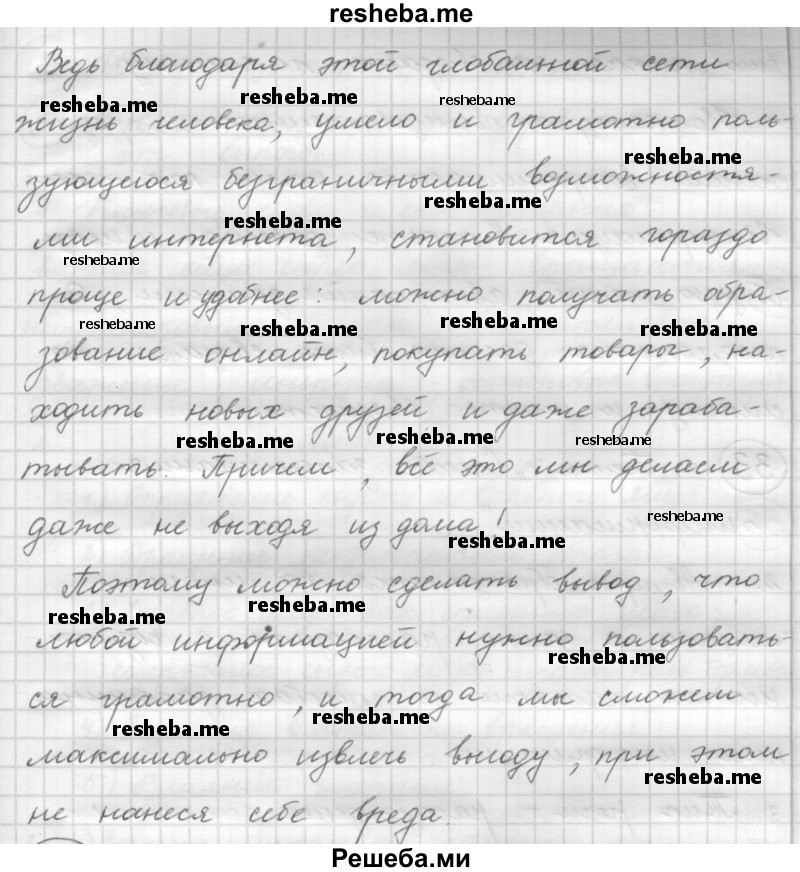 resheba.me
Ведь благодаря этой глобальной сети
resheba.me resheba.me resheba.me
жизнь человека, умело и грамотно поль-
resheba.me
зующегося безграничными возможностя-
resheba.me resheba.me
ми интернета, становится гораздо
resheba.me
проще и удобнее: можно получать обра-
resheba.me resheba.me resheba.me resheba.me
зование онлайн, покупать товары, на-
ходить новых друзей и даже зараба-
resheba.me resheba.me resheba.me
тывать. Причем, всё это мы делаем
resheba.me
даже не выходя из дома!
resheba.me
Поэтому можно сделать вывод, что
resheba.me resheba.me
любой информацией нужно пользовать-
resheba.me
ся грамотно, и тогда мы сможем
resheba.me resheba.me
максимально извлечь выгоду, при этом
resheba.me
не нанеся себе вреда.
Решеба.ми